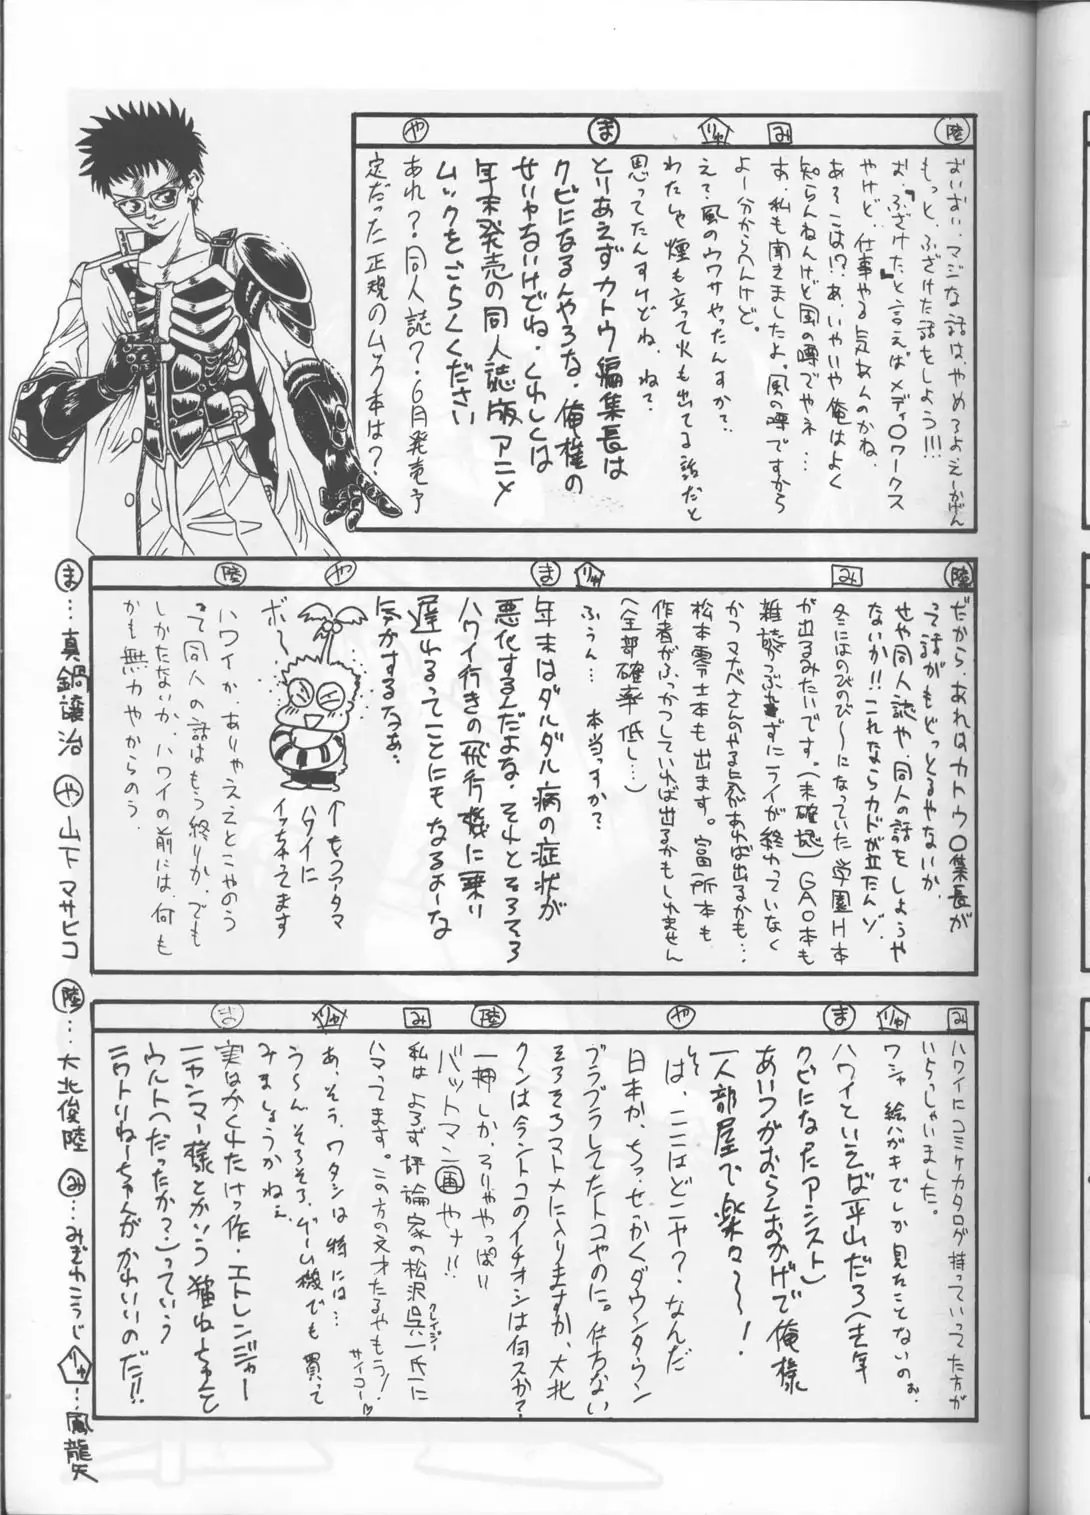 陸
おいおい、マジな話はやめろよえーかげん
もっと、ふざけた話をしよう!!!
お、『ふざけた』と言えばメディ〇ワークス
やけど、仕事やる気あんのかね。
あそこは!?あ、いやいや俺はよく
知らんねんけど風の噂でやネ…
み
す、私も聞きましたよ。風の噂ですから
よー分からんけど。
りゅ
え?風のウワサやったんすか?
わたしゃ煙も立って火も出てる話だと
思ってたんすけどね、ね?
ま
とりあえずカトウ編集長は
クビになるんやろな。俺権の
せいやないけどね、くわしくは
年末発売の同人誌版アニメ
ムックをごらくください
や
あれ?同人誌?6月発売予
定だった正規のムック本は?
陸
だから、あれはカトウ〇集長が
って話がもどっとるやないか、
せや同人誌や、同人の話をしようや
ないか!!これならカドが立たんゾ。
み
冬にはのびのび〜になっていた学園H本
が出るみたいです。(未確認)GAO本も
雑誌つぶれずにライが終わっていなく
かつマナベさんのやる気があれば出るかも…
松本零士本も出ます。富所本も
作者がふっかつしていれば出るかもしれません
(全部確率低し…)
りゅ
ふぅん… 本当っすか?
ま
年末はダルダル病の症状が
悪化するんだよな、それとそろそろ
ハワイ行きの飛行機に乗り
遅れるってことにもなるよーな
気がするなぁ。
や
ボ〜
↑もうアタマ
ハワイに
イッちゃってます
陸
ハワイか、ありゃええとこやのう
って同人の話はもう終りか、でも
しかたないか、ハワイの前には、何も
かも無力やからのう。
み
ハワイにコミケカタログ持っていってた方が
いらっしゃいました。
りゅ
ワシャ絵ハガキでしか見たことないのぉ。
ま
ハワイといえば平山だろ(去年
クビになったアシスト)
あいつがおらんおかげで俺様
一人部屋で楽々〜〜!
や
そは、ここはどこや?なんだ
日本か、ちっ、せっかくダウンタウン
ブラブラしてたトコやのに。仕方ない
そろそろマトメに入りますか、大北
クンは今ントコのイチオシは何スか?
陸
一押しか、そりゃやっぱ!!
バットマン(再)やナ!!
み
私は、よろず評論家の松沢呉一氏に
ハマってます。この方の文オたるやもう!
クレイジー
サイコー♡
りゅ
あ、そう、ワタシは特には…
う〜ん、そろそろ、ゲーム機でも買って
みましょうかねぇ
ま
実はかくれたけっ作・エトレンジャー
ニャンマー様とかいう猫ねえちゃんと
ウルトへ(だったか?)っていう
ニワトリねーちゃんがかわいいのだ!!
ま…真鍋譲治 や…山下マサヒコ 陸…大北俊陸 み…みぎわこうじ りゅ…風龍矢